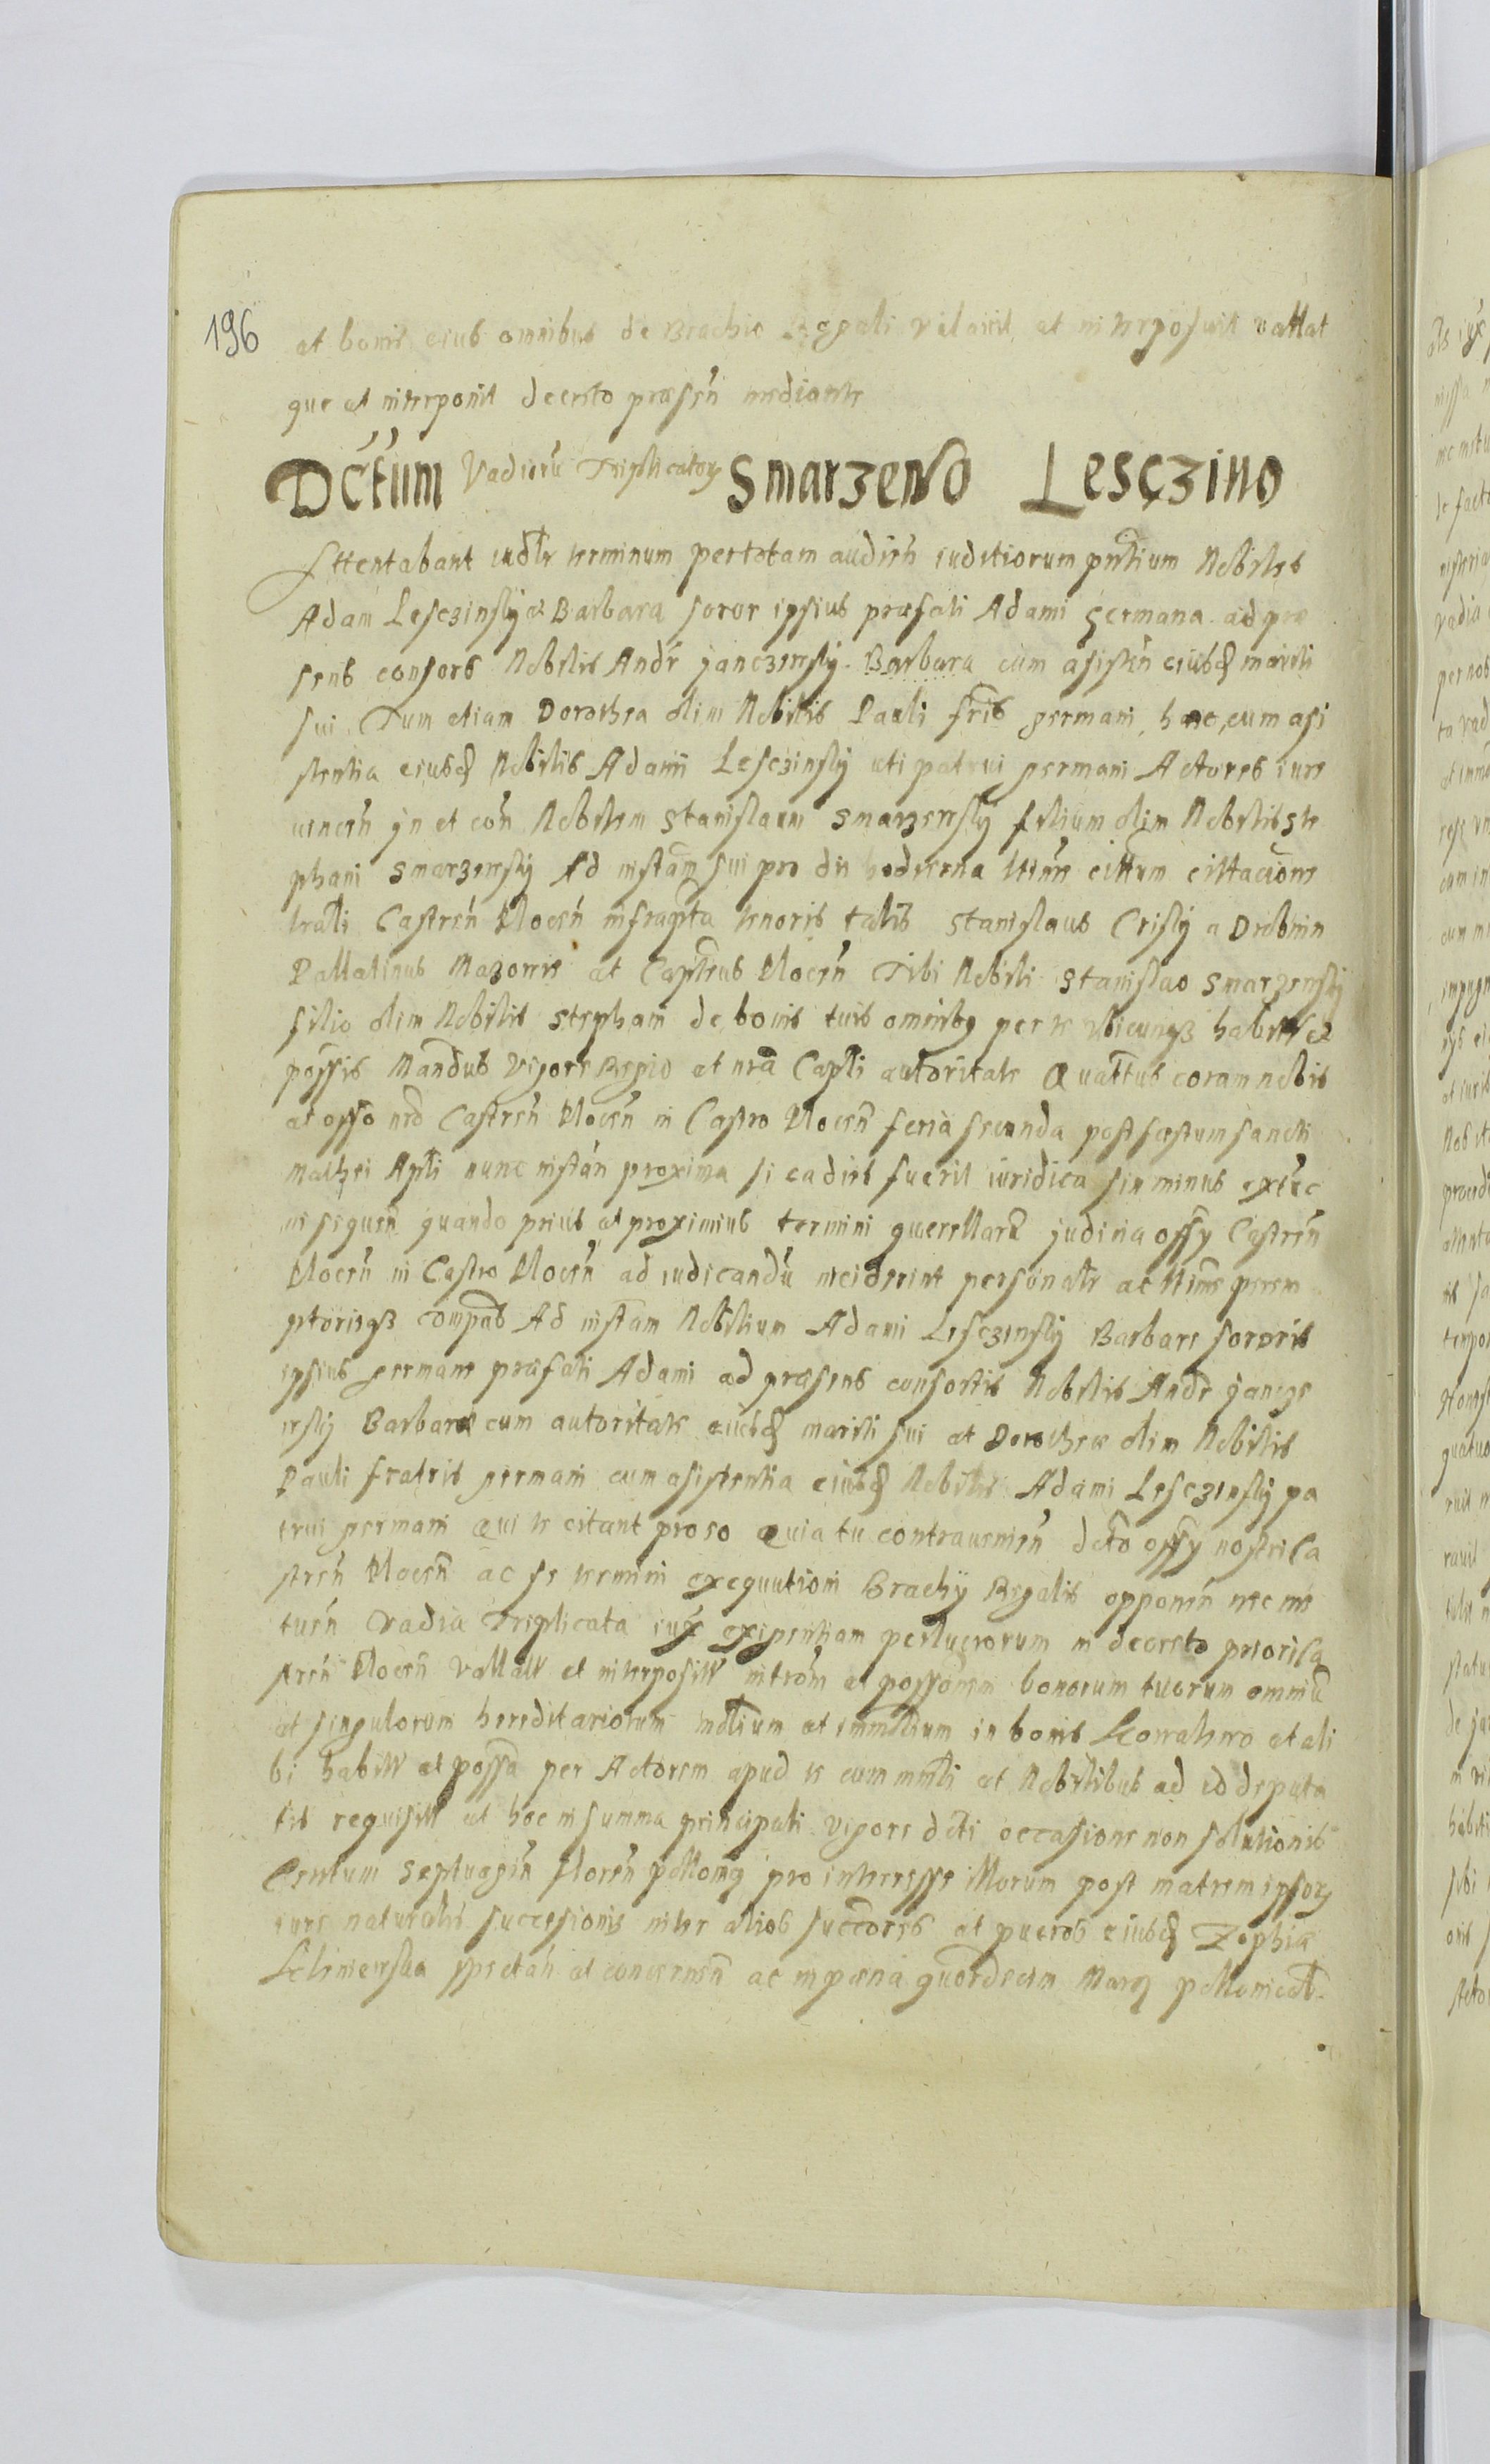 196
et bonis eius omnibus de Brachio Regali vallavit et interposuit vallat
que et interponit decreto præsen mediante
Dctum Vadioru Triplicator Smarzewo Lesczino
Attentabant iudlr terminum per totam audien iuditiorum pntium Nobiles
Adam Lesczinsky et Barbara soror ipsius præfati Adami germana ad præ
sens consors Nobilis Andr Janczewsky Barbara cum asisten eiusd mariti
sui Tum etiam Dorothea olim Nobilis Pauli fris germani, hæc cum asi
stentia eiusd Nobilis Adami Lesczinsky uti patrui germani Actores iure
vincen in et con Nobilem Stanislaum Smarzewsky filium olim Nobilis Ste
phani Smarzewsky Ad instam sui pro die hodierna ltime cittum cittacione
trali Castren Plocen infrascpta tenoris talis Stanislaus Crisky a Drobnin
Pallatinus Mazovie et Captneus Plocen Tibi Nobili Stanislao Smarzewsky
filio olim Nobilis Stephani de bonis tuis omnibq per te ubicunqz habitis et
possis Mandus vigore Regio et nra Capli autoritate Quattus coram nobis
et offo nro Castren Plocen in Castro Plocen feria secunda post festum sancti
Mathei Apli nunc instan proxima si ea dies fuerit iuridica sin minus extuc
in sequen quando prius et proximius termini querellaru judicia offy Castren
Plocen in Castro Plocen ad iudicandu inciderint personalr ac ltime perem
ptorieqz compas Ad instam Nobilium Adami Lesczinsky Barbare sororis
ipsius germane præfati Adami ad præsens consortis Nobilis Andr Jancze
wsky Barbaræ cum autoritate eiusd mariti sui et Dorotheæ olim Nobilis
Pauli fratris germani cum asistentia eiusd Nobilis Adami Lesczinsky pa
trui germani Qui te citant pro eo Quia tu contravenien dcto offy nostri Ca
stren Plocen ac se termini exequutioni Brachy Regalis opponen nec me
tuen Vadia Triplicata iux exigentiam perlucrorum in decreto priori Ca
stren Plocen vallata et interposita introm et possonem bonorum tuorum omniu
et singulorum hereditariorum mobilium et immobilium in bonis Kowalewo et ali
bi habita et possa per Actorem apud te cum mnli et Nobilibus ad id deputa
tis requisita et hoc in summa principali vigore dcti occasione non solutionis
Centum Septuagin floren pollonq pro interesse illorum post matrem ipsor
iure naturalis succesionis inter alios succores et pueros eiusd Zophiæ
spectan et concernen ac in pœna quordecim Marq pollonical